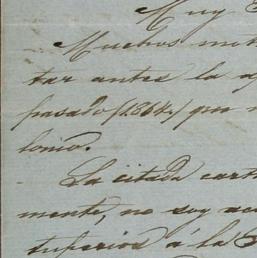 Muy
Muchos mot
tar antes la a
pasado (1864) que
lonio.
La citada cart
mente, no soy ac
tuperios á la